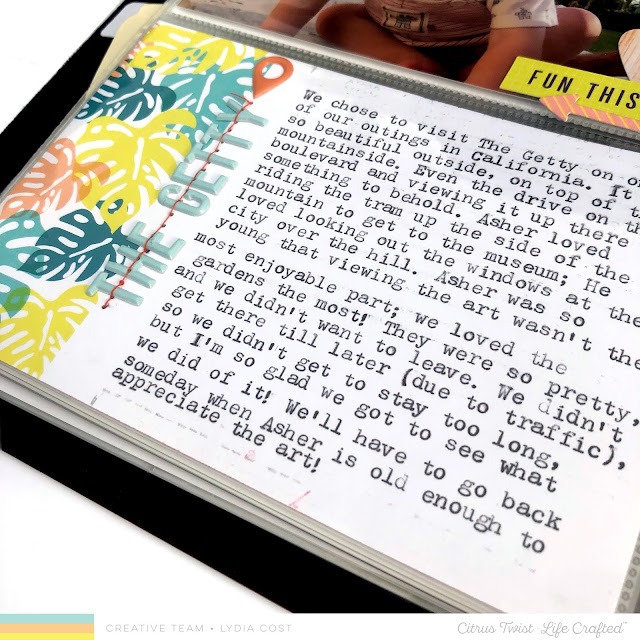 FUN THIS
THE GETTY
We chose to visit The Getty on
of our outings in California. It
so beautiful outside, on top of
mountainside. Even the drive on
boulevard and viewing it up there
something to behold. Asher loved
riding the tram up the side of the
mountain to get to the museum; He
loved looking out the windows at the
city over the hill. Asher was so
young that viewing the art wasn't the
most enjoyable part; we loved the
gardens the most! They were so pretty,
and we didn't want to leave. We didn't
get there till later (due to traffic),
so we didn't get to stay too long,
but I'm so glad we got to see what
we did of it! We'll have to go back
someday when Asher is old enough to
appreciate the art!
CREATIVE TEAM • LYDIA COST
Citrus Twist Life Crafted™